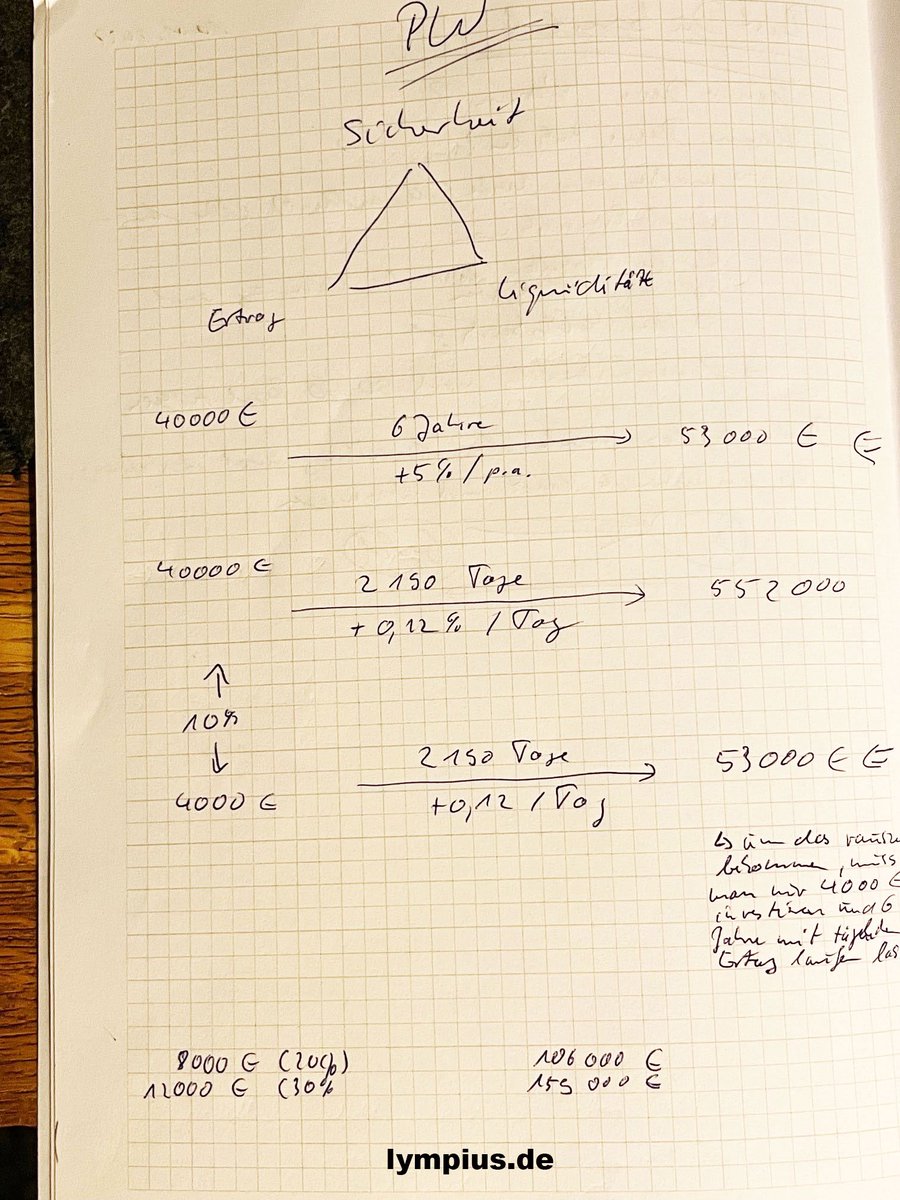 PW
Sicherheit
Ertrag
Liquidität
40000 €
6 Jahre
+5% / p.a.
53 000 €
40000 €
2 190 Tage
+ 0,12 % / Tag
552 000
10%
4000 €
2 190 Tage
+0,12 / Tag
53 000 €
↳ um das
bekommen, muss
man nur 4000 €
investieren und 6
Jahre mit
Ertrag laufen las
8000 € (20%)
12000 € (30%
106 000 €
159 000 €
lympius.de